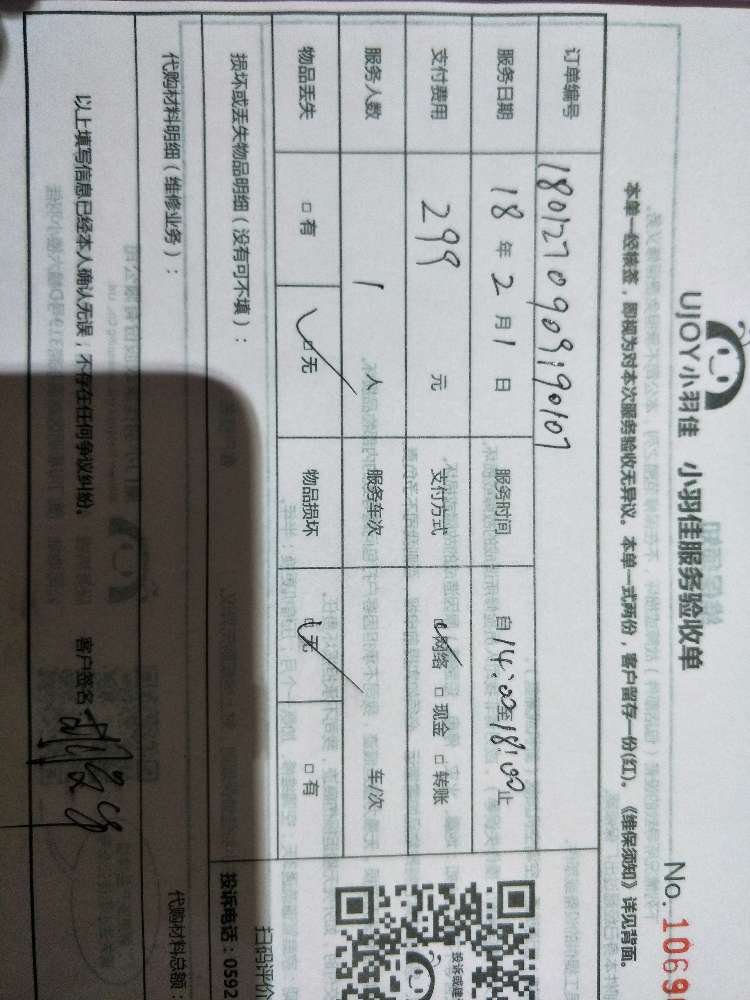 UJOY小羽佳 小羽佳服务验收单
No. 1069
本单一经核签，即视为对本次服务验收无异议。本单一式两份，客户留存一份(红)。《维保须知》详见背面。
订单编号 1801270909190107
服务日期 18年2月1日 服务时间 自14:00至18:00止
支付费用 299 元 支付方式 ☑网络 □现金 □转账
服务人数 1 人 服务车次 车/次
物品丢失 □有 ☑无 物品损坏 ☑无 □有
损坏或丢失物品明细（没有可不填）：
扫码评价
投诉电话：0592
代购材料明细（维修业务）：
代购材料总额：
以上填写信息已经本人确认无误；不存在任何争议纠纷。 客户签名：